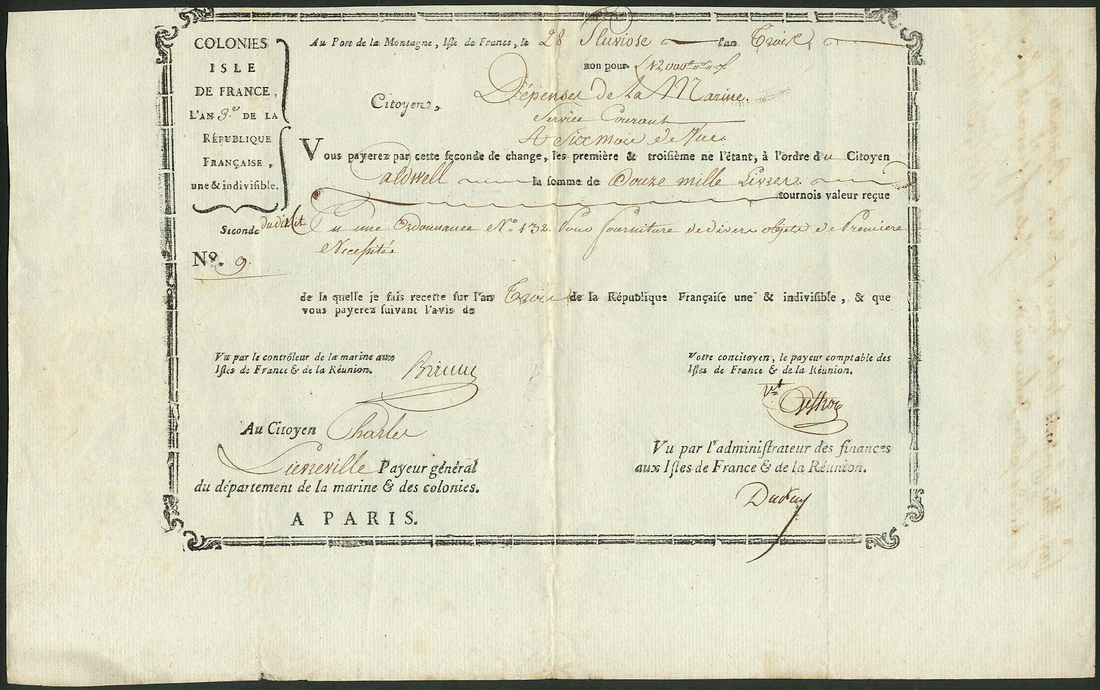 COLONIES
ISLE
DE FRANCE,
L'AN 3.e DE LA
RÉPUBLIQUE
FRANÇAISE,
une & indivisible.
Seconde du dit
N.o 9.
Au Port de la Montagne, Isle de France, le 28 Pluviose l'an Trois,
bon pour 12000
Citoyen, Dépenses de la Marine.
Service Courant
A Six mois de Vue
Vous payerez par cette seconde de change, les première & troisième ne l'étant, à l'ordre du Citoyen
Caldwell la somme de Douze mille Livres
tournois valeur reçue
En une Ordonnance N.o 132. Pour fourniture de divers objets de Première
Necessité
de la quelle je fais recette sur l'an Trois de la République Française une & indivisible, & que
vous payerez suivant l'avis de
Vu par le contrôleur de la marine aux
Isles de France & de la Réunion.
Votre concitoyen, le payeur comptable des
Isles de France & de la Réunion.
Au Citoyen Charles
Lierreville Payeur général
du département de la marine & des colonies.
A PARIS.
Vu par l'administrateur des finances
aux Isles de France & de la Réunion.
Dupuy